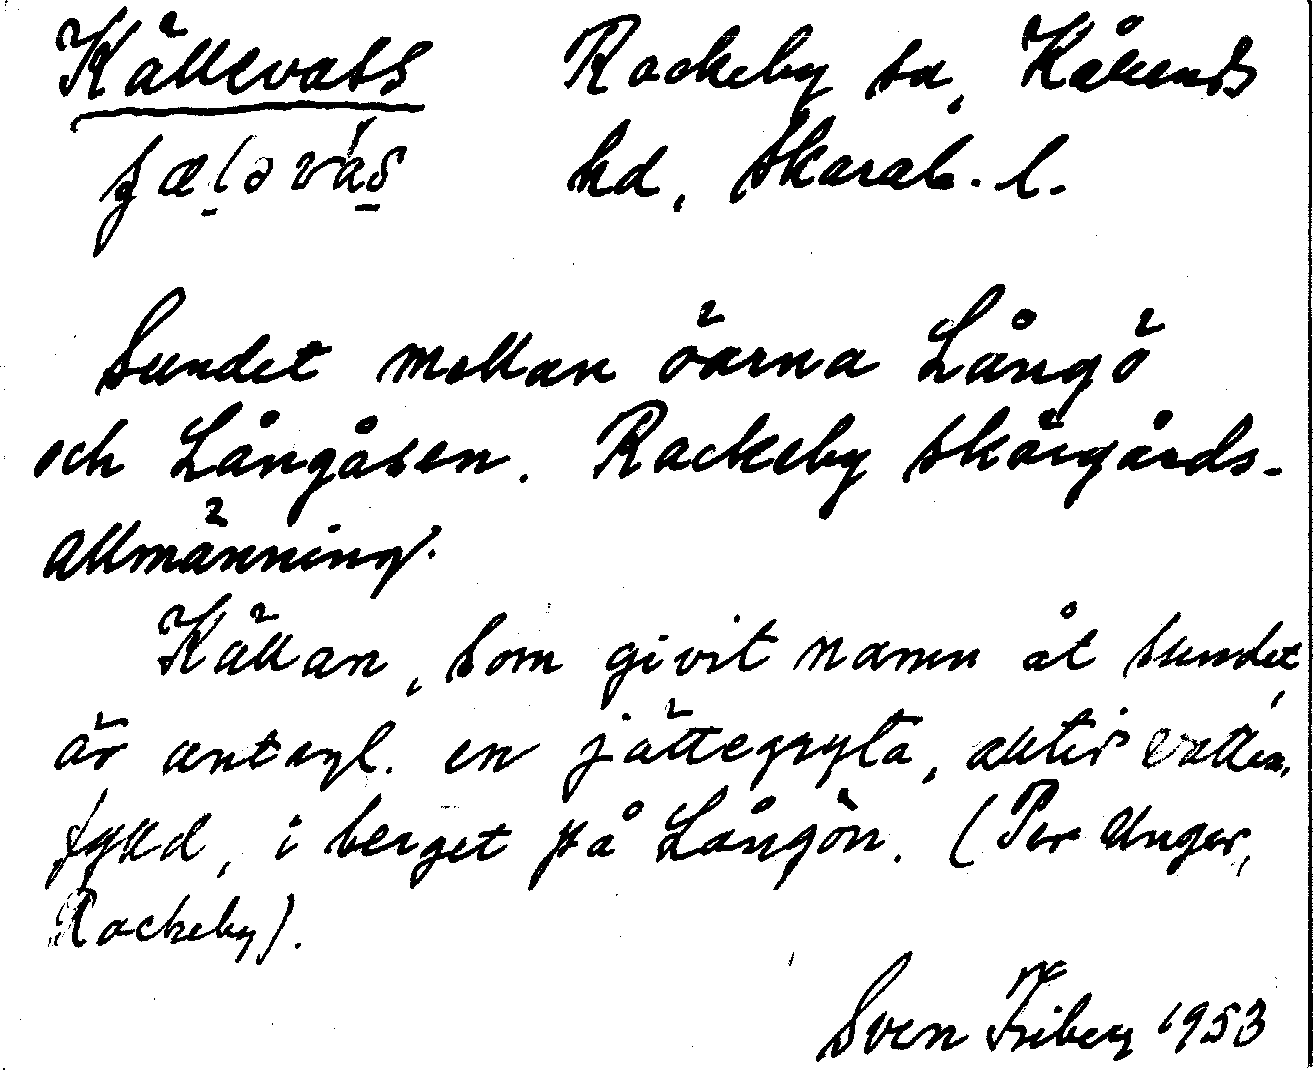 Källevass Rackeby sn, Kållands
hd, Skarab. l.
Sundet mellan öarna Långö
och Långåsen. Rackeby skärgårds-
allmänning.
Källan, som givit namn åt sundet,
är antagl. en jättegryta, alltid vatten-
fylld, i berget på Långön. (Per Unger,
Rackeby).
Sven Friberg 1953